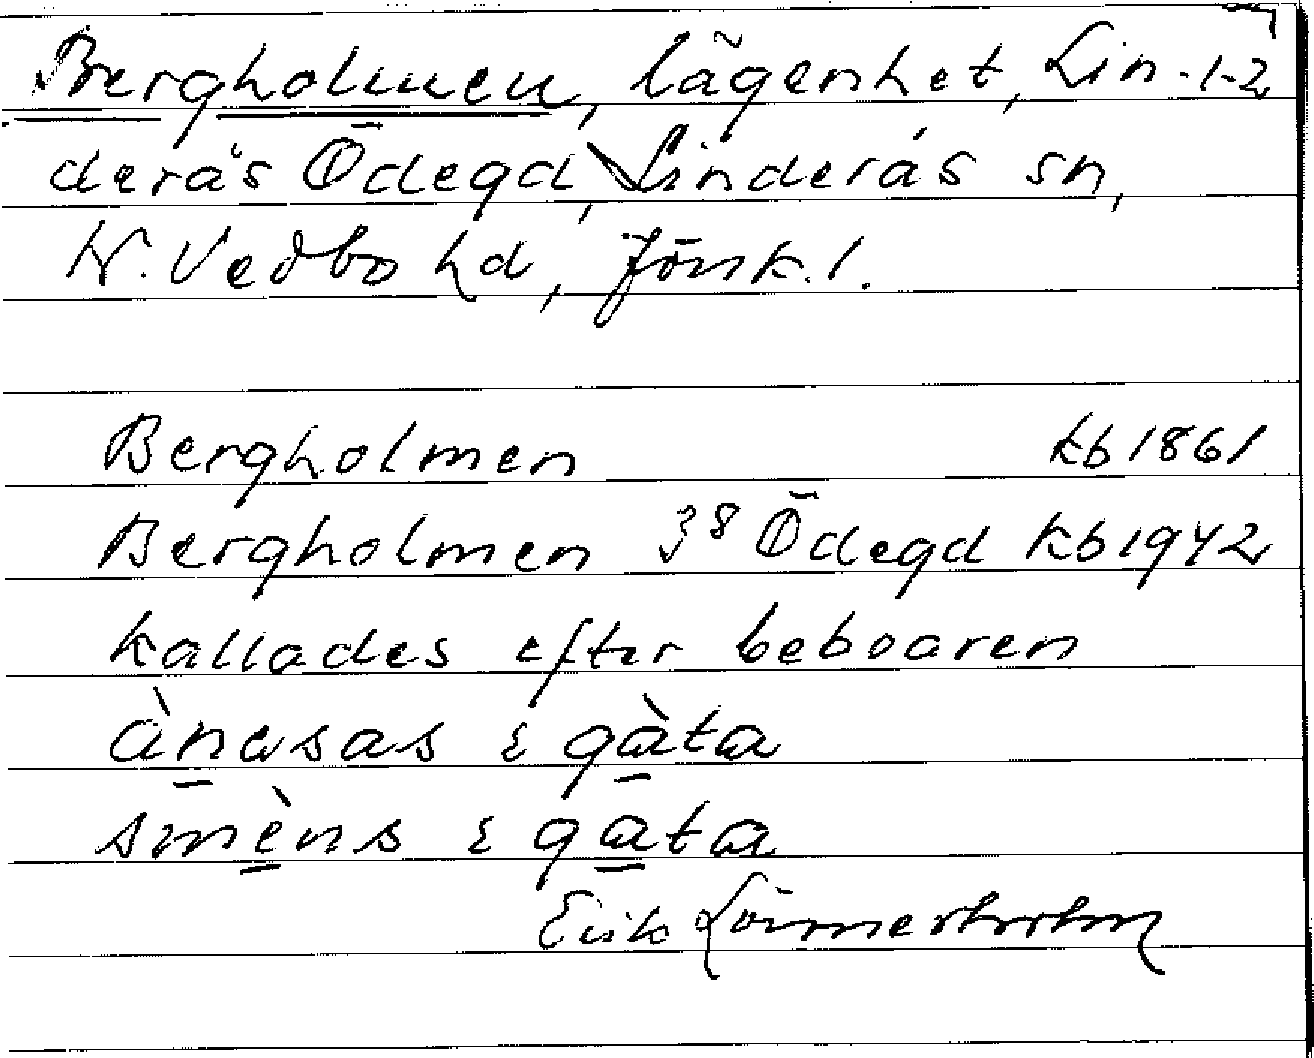 Bergholmen, lägenhet, Lin-1-2
derås Ödegd, Linderås sn,
N. Vedbo hd, Jönk. l.
Bergholmen kb 1861
Bergholmen 3⁸ Ödegd kb 1942
kallades efter beboaren
ànasas ɛ gàta
smèns ɛ gata
Erik